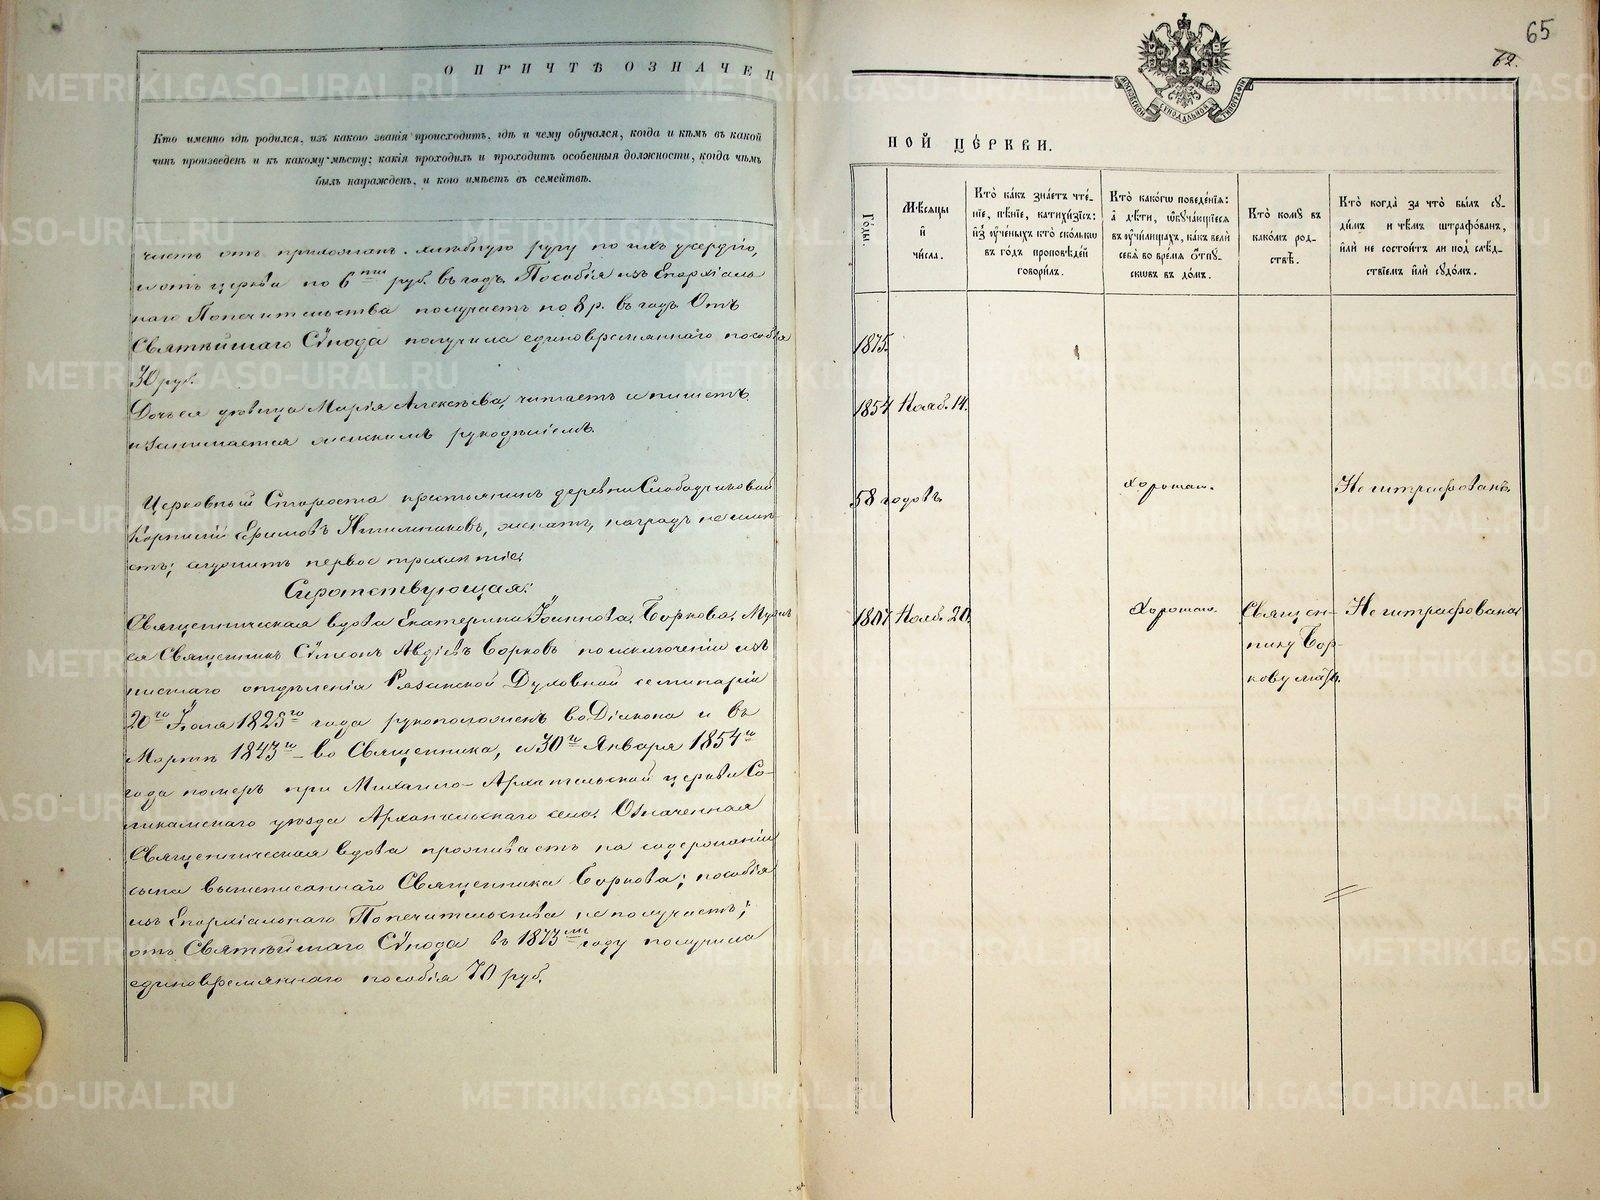 О ПРИЧТѢ ОЗНАЧЕН
Кто именно гдѣ родился, изъ какого званія происходитъ, гдѣ и чему обучался, когда и кѣмъ въ какой
чинъ произведенъ и къ какому мѣсту; какія проходилъ и проходитъ особенныя должности, когда чѣмъ
былъ награжденъ, и кого имѣетъ въ семействѣ.
честь отъ прихожан. хлѣбную ругу по ихъ усердію,
и отъ церкви по 6ти руб. въ годъ. Пособія изъ Епархіаль
наго Попечительства получаетъ по 8 р. въ годъ. Отъ
Святѣйшаго Сѵнода получила единовременнаго пособія
30 руб.
Дочь ея дѣвица Марія Алексѣева, читаетъ и пишетъ
и занимается женскимъ рукодѣліемъ.
Церковный Староста крестьянинъ деревни Слободчиковой
Ефимовъ женатъ, наградъ не имѣ-
етъ; служитъ первое трехлѣтіе.
Сиротствующая:
Священническая вдова Екатерина Іоаннова, Боркова, Мужъ
ея Священникъ Сѵмеонъ Авдіевъ Борковъ по исключеніи изъ
низшаго отдѣленія Рязанской Духовной семинаріи
20го Іюля 1825го года рукоположенъ во Діакона и въ
Мартѣ 1843 во Священника, и 30 Января 1854
года померъ при Михаило-Архангельской церкви Со-
ликамскаго уѣзда Архангельскаго села. Означенная
Священническая вдова проживаетъ на содержаніи
сына вышеписаннаго Священника Боркова; пособія
изъ Епархіальнаго Попечительства не получаетъ;
отъ Святѣйшаго Сѵнода въ 1873 году получила
единовременнаго пособія 70 руб.
65
62.
МОСКОВСКОЙ СѴНОДАЛЬНОЙ ТИПОГРАФІИ
НОЙ ЦЕРКВИ.
Годы.
Мѣсяцы
и
числа.
Кто какъ знаетъ чте-
ніе, пѣніе, катихизисъ:
изъ ученыхъ кто сколько
въ годъ проповѣдей
говорилъ.
Кто какого поведенія:
а дѣти, обучающіеся
въ училищахъ, какъ вели
себя во время отпу-
сковъ въ домъ.
Кто кому въ
какомъ род-
ствѣ.
Кто когда за что былъ су-
димъ и чѣмъ штрафованъ,
или не состоитъ ли под слѣд-
ствіемъ или судомъ.
1875.
1854 Нояб. 14.
58 годовъ
Хорошаго.
Не штрафованъ
1807 Нояб. 20.
Хорошаго.
Священ-
нику Бор-
кову мать.
Не штрафована
METRIKI.GASO-URAL.RU